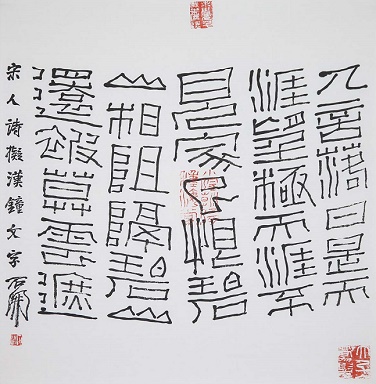 人言落日是天
涯望極天涯不
見家已恨碧
山相阻隔碧山
還被暮雲遮
宋人詩擬漢鐘文字